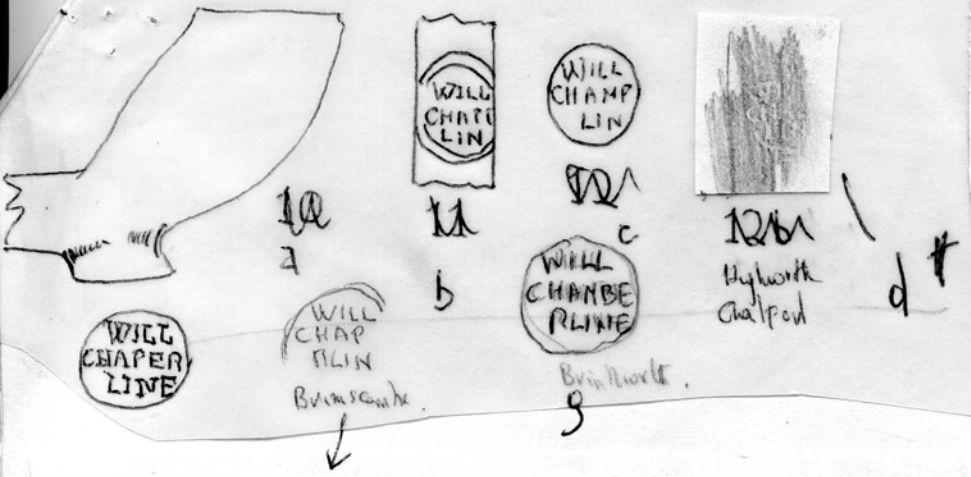 WILL
CHAPE
LIN
WILL
CHAMP
LIN
10
11
12
12b
a
b
c
d
Highworth
WILL
CHAPER
LINE
WILL
CHAP
RLIN
Brimscombe.
WILL
CHANBE
RLINE
Brinkworth.
g